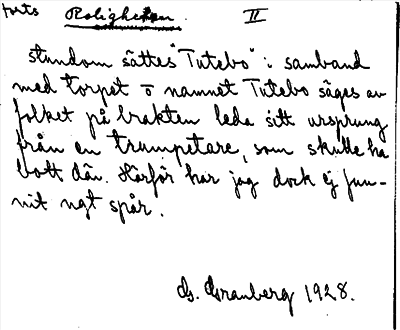 forts Roligheten. II
stundom sättes "Tutebo" i samband
med torpet o namnet Tutebo säges av
folket på trakten leda sitt ursprung
från en trumpetare, som skulle ha
bott där. Härför har jag dock ej fun-
nit ngt spår.
G. Granberg 1928.